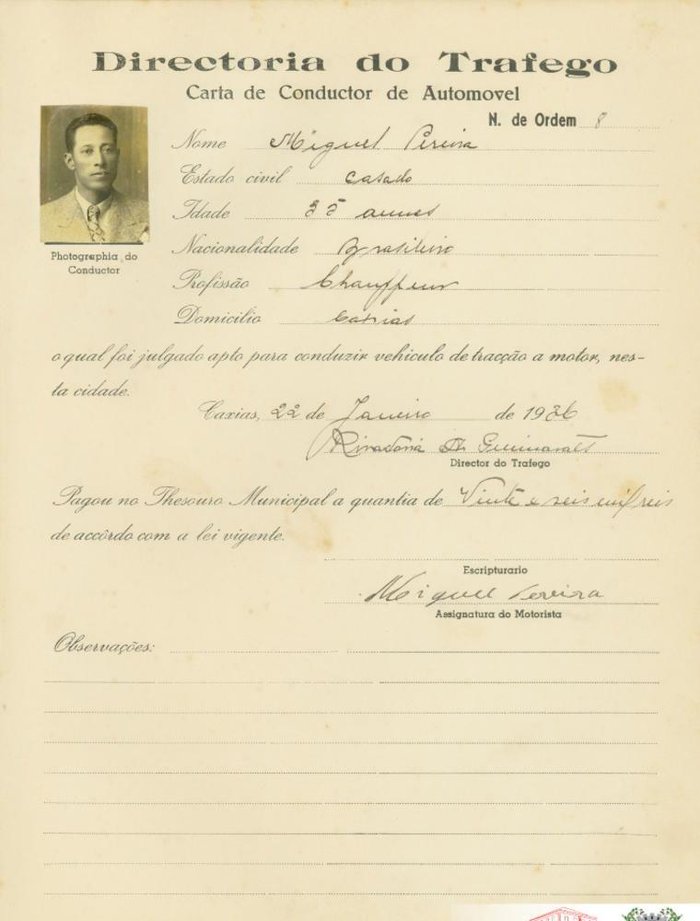 Directoria do Trafego
Carta de Conductor de Automovel
N. de Ordem 8
Nome Miguel Pereira
Estado civil casado
Idade 35 annos
Nacionalidade Brasileiro
Photographia do
Conductor
Profissão Chauffeur
Domicilio Caxias
o qual foi julgado apto para conduzir vehiculo de tracção a motor, nes-
ta cidade.
Caxias, 22 de Janeiro de 1936
Guimarães
Director do Trafego
Pagou no Thesouro Municipal a quantia de Vinte e seis mil reis
de accôrdo com a lei vigente.
Escripturario
Miguel Pereira
Assignatura do Motorista
Observações: